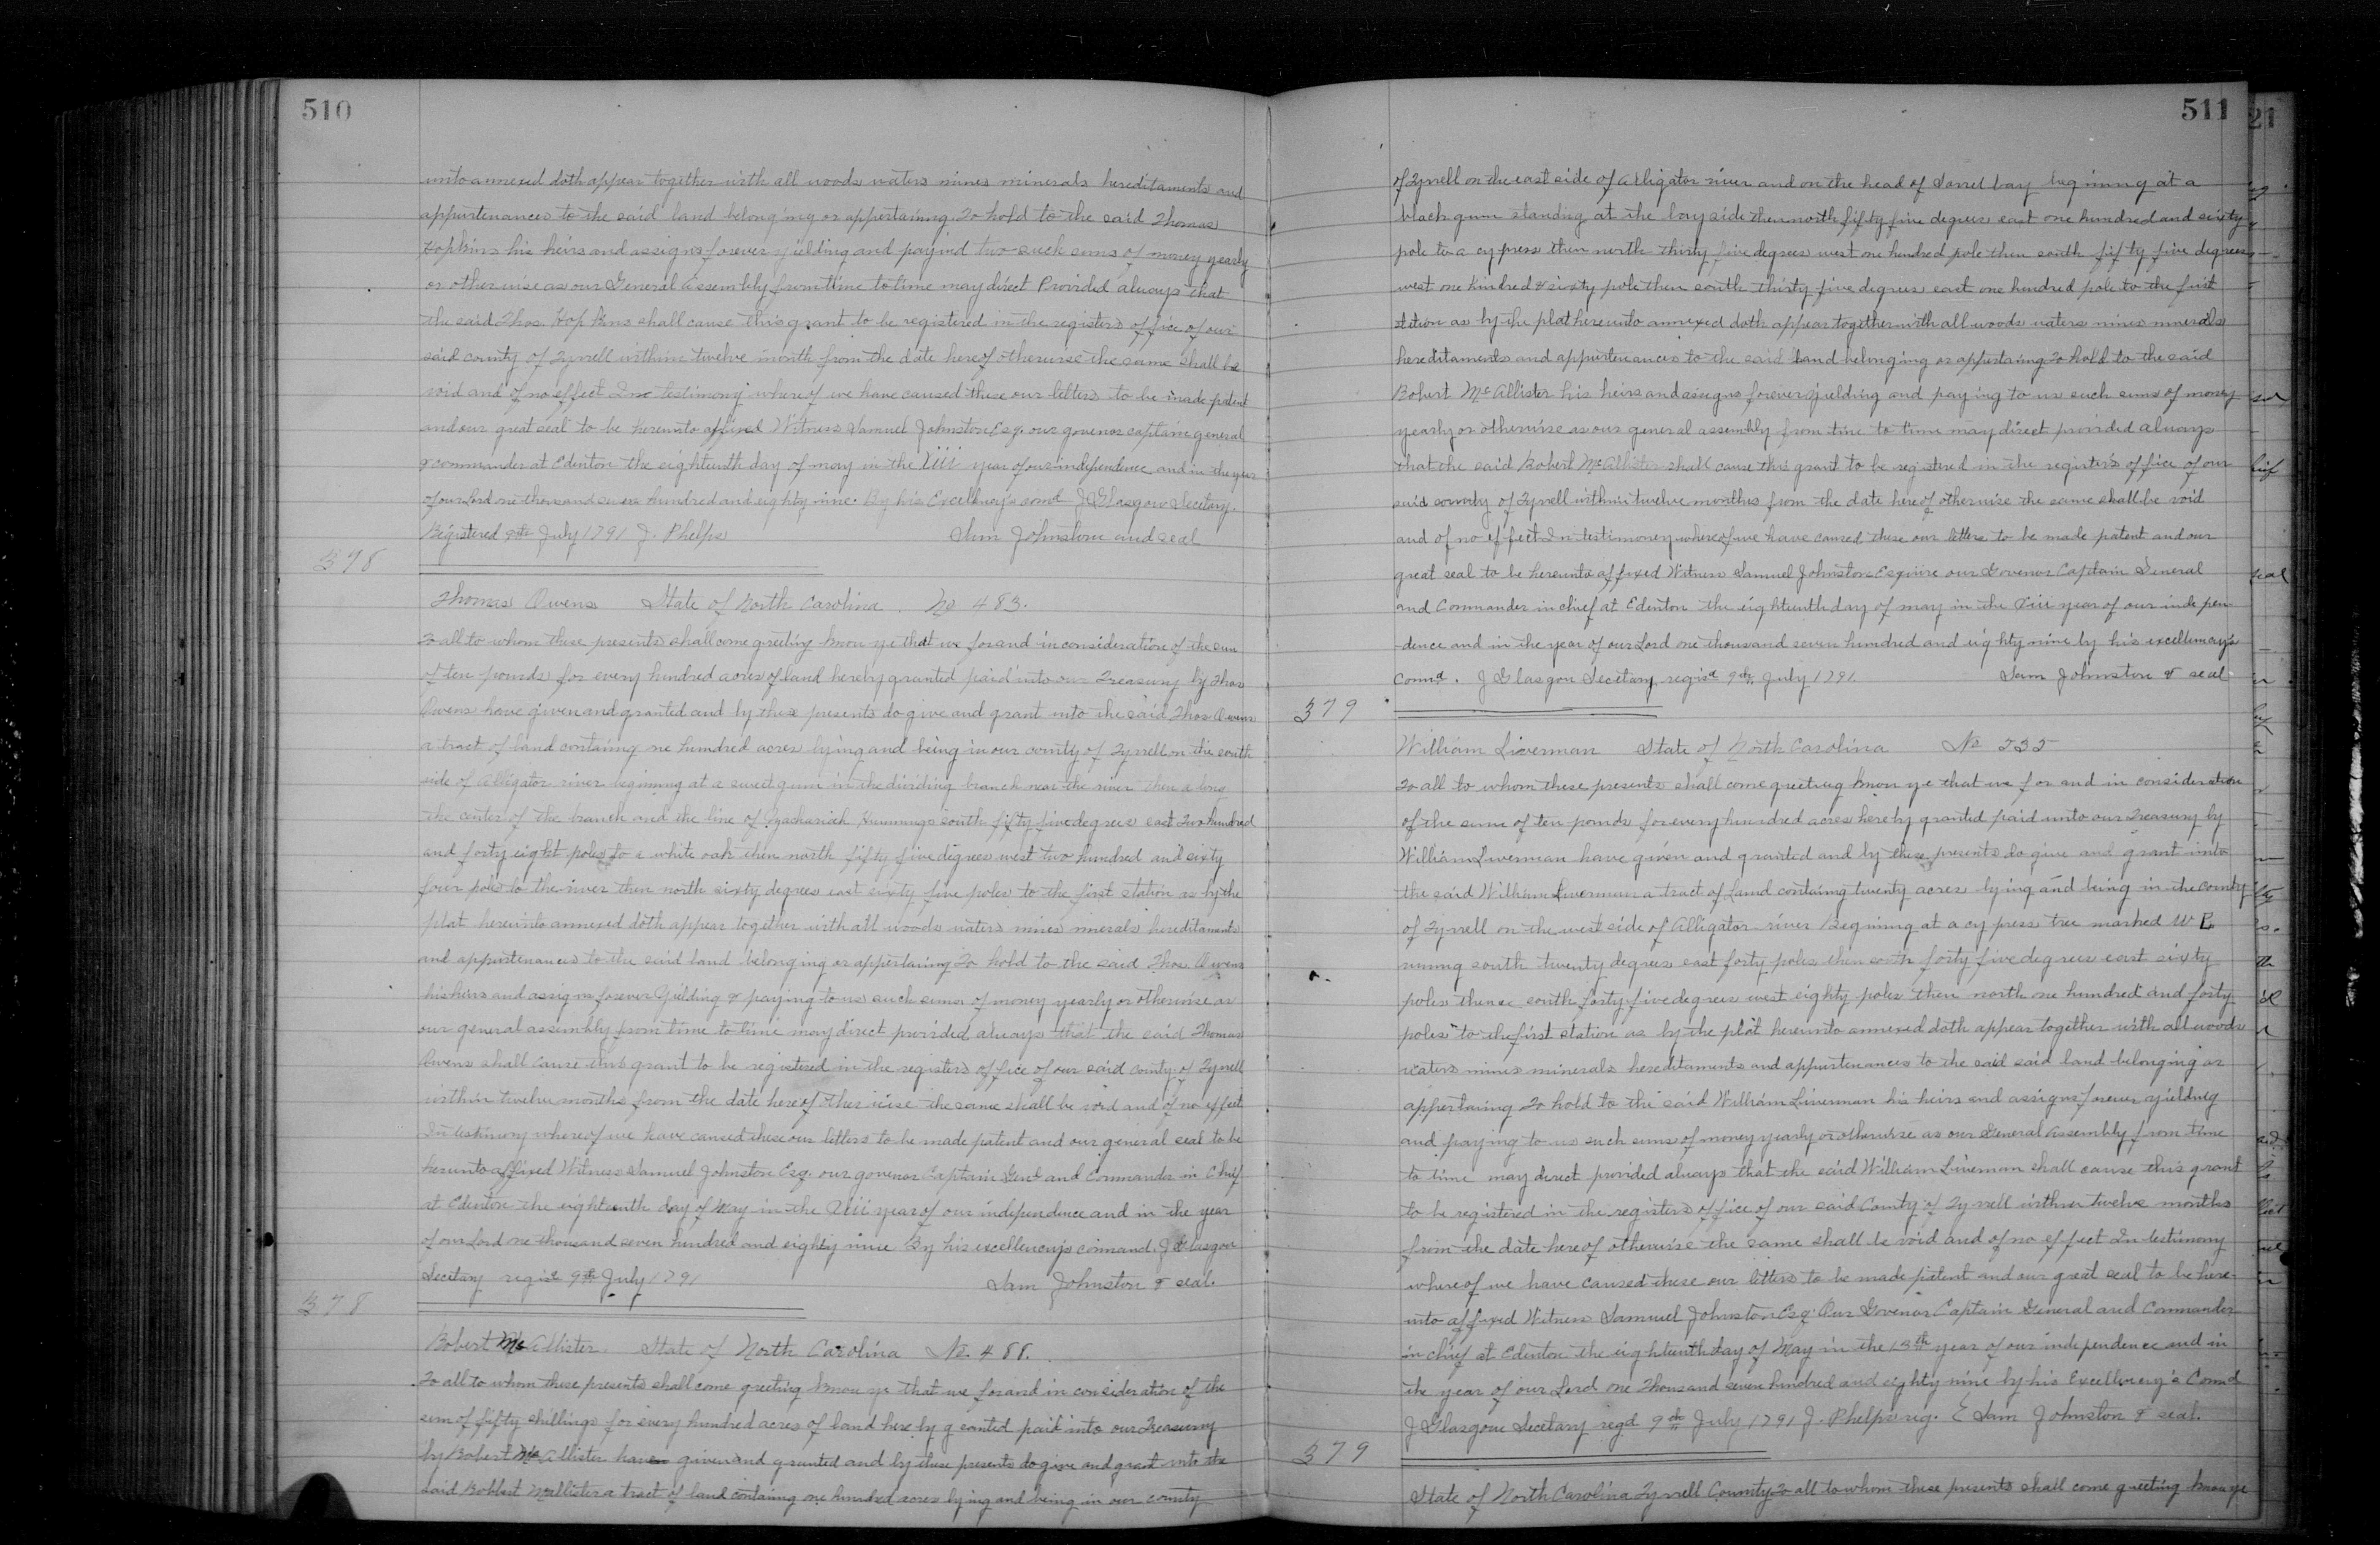 510
unto annexed doth appear together with all woods waters mines minerals hereditaments and
appurtenances to the said land belonging or appertaining. To hold to the said Thomas
Hopkins his heirs and assigns forever yielding and payind two such sums of money yearly
or otherwise as our General Assembly from time to time may direct Provided always that
the said Thos. Hopkins shall cause this grant to be registered in the registers office of our
said county of Tyrrell within twelve month from the date hereof otherwise the same shall be
void and of no effect In testimony whereof we have caused these our letters to be made patent
and our great seal to be hereunto affixed Witness Samuel Johnston Esq. our govenor captain general
& commander at Edenton the eighteenth day of may in the Xiii year of our independence and in the year
of our Lord one thousand seven hundred and eighty nine. By his Excellency's comd J Glasgow Secetary.
Registered 9th July 1791 J. Phelps Sam Johnston and seal
378
Thomas Owens State of North Carolina. No 483.
To all to whom these presents shall come greeting know ye that we for and in consideration of the sum
of ten pounds for every hundred acres of land hereby granted paid into our Treasury by Thos
Owens have given and granted and by these presents do give and grant into the said Thos Owens
a tract of land containg ne hundred acres lying and being in our county of Tyrrell on the south
side of Alligator river beginning at a sweet gum in the dividing branch near the river then along
the center of the branch and the line of Zachariah Hummings south fifty five degrees east Two hundred
and forty eight poles to a white oak then north fifty five degrees west two hundred and sixty
four poles to the river then north sixty degrees east sixty five poles to the first station as by the
plat hereunto annexed doth appear together with all woods waters mines mnerals hereditaments
and appurtenances to the said land belonging or appertaining To hold to the said Thos Owens
his heirs and assigns forever Yielding & paying to us such sums of money yearly or otherwise as
our general assembly from time to time may direct provided always that the said Thomas
Owens shall cause this grant to be registered in the registers office of our said county of Tyrrell
within twelve months from the date hereof other wise the same shall be void and of no effect
In testimony whereof we have caused these our letters to be made patent and our general seal to be
hereunto affixed Witness Samuel Johnston Esq. our govenor Captain Genl and Commander in Chief
at Edenton the eighteenth day of May in the Xiii year of our independence and in the year
of our Lord ne thousand seven hundred and eighty nine By his excellencys comand. J Glasgow
Secetary regist 9th July 1791 Sam Johnston & seal.
378
Robert McAllister State of North Carolina No. 488.
To all to whom these presents shall come greeting know ye that we for and in consideration of the
sum of fifty shillings for every hundred acres of land here by granted paid into our Treasury
by Robert McAllister have given and granted and by these presents do give and grant into the
said Robbert McAllister a tract of land containg one hundred acres lying and being in our county
511
of Tyrrell on the east side of Alligator river and on the head of Sarrel bay beginning at a
black gum standing at the bay side then north fifty five degrees east one hundred and sixty
pole to a cypress then north thirty five degrees west one hundred pole then south fifty five degrees
west one hundred & sixty pole then south thirty five degrees east one hundred pole to the first
sttion as by the plat hereunto annexed doth appear together with all woods waters mines minerals
hereditaments and appurtenances to the said land belonging or appertaing To hold to the said
Robert McAllister his heirs and assigns forever yielding and paying to us such sums of money
yearly or otherwise as our general assembly from time to time may direct provided always
that the said Robert McAllister shall cause this grant to be registered in the registers office of our
said county of Tyrrell within twelve months from the date hereof otherwise the same shall be void
and of no effect In testimoney whereof we have caused these our letters to be made patent and our
great seal to be hereunto affixed Witness Samuel Johnston Esquire our Govenor Captain General
and Commander in chief at Edenton the eighteenth day of may in the Xiii year of our indepen-
dence and in the year of our Lord one thousand seven hundred and eighty nine by his excellencay's
Comd. J Glasgon Secetary regist 9th July 1791. Sam Johnston & seal
379
William Liverman State of North Carolina No 535
To all to whom these presents shall come greeting know ye that we for and in consideration
of the sum of ten pounds for every hundred acres hereby granted paid unto our Treasury by
William Liverman have given and granted and by these presents do give and grant into
the said William Liverman a tract of land containg twenty acres lying and being in the county
of Tyrrell on the west side of Alligator river Begining at a cypress tree marked W L
runing south twenty degrees east forty poles then south forty five degrees east sixty
poles thence south forty five degrees west eighty poles then north one hundred and forty
poles to the first station as by the plat hereunto annexed doth appear together with all woods
waters mines minerals hereditaments and appurtenances to the said said land belonging or
appertaing To hold to the said William Liverman his heirs and assigns forever yielding
and paying to us such sums of money yearly or otherwise as our General Assembly from time
to time may direct provided always that the said William Liverman shall cause this grant
to be registered in the registers office of our said County of Tyrrell within twelve months
from the date hereof otherwise the same shall be void and of no effect In testimony
whereof we have caused these our letters to be made patent and our great seal to be here-
unto affixed Witness Samuel Johnston Esq. Our Govenor Captain General and Commander
in chief at Edenton the eighteenth day of May in the 13th year of our independence and in
the year of our Lord one Thousand seven hundred and eighty nine by his Excellency's Comd
J Glasgow Secetary regd 9th July 1791 J. Phelps reg. Sam Johnston & seal.
379
State of North Carolina Tyrrell County To all to whom these presents shall come greeting know ye
21